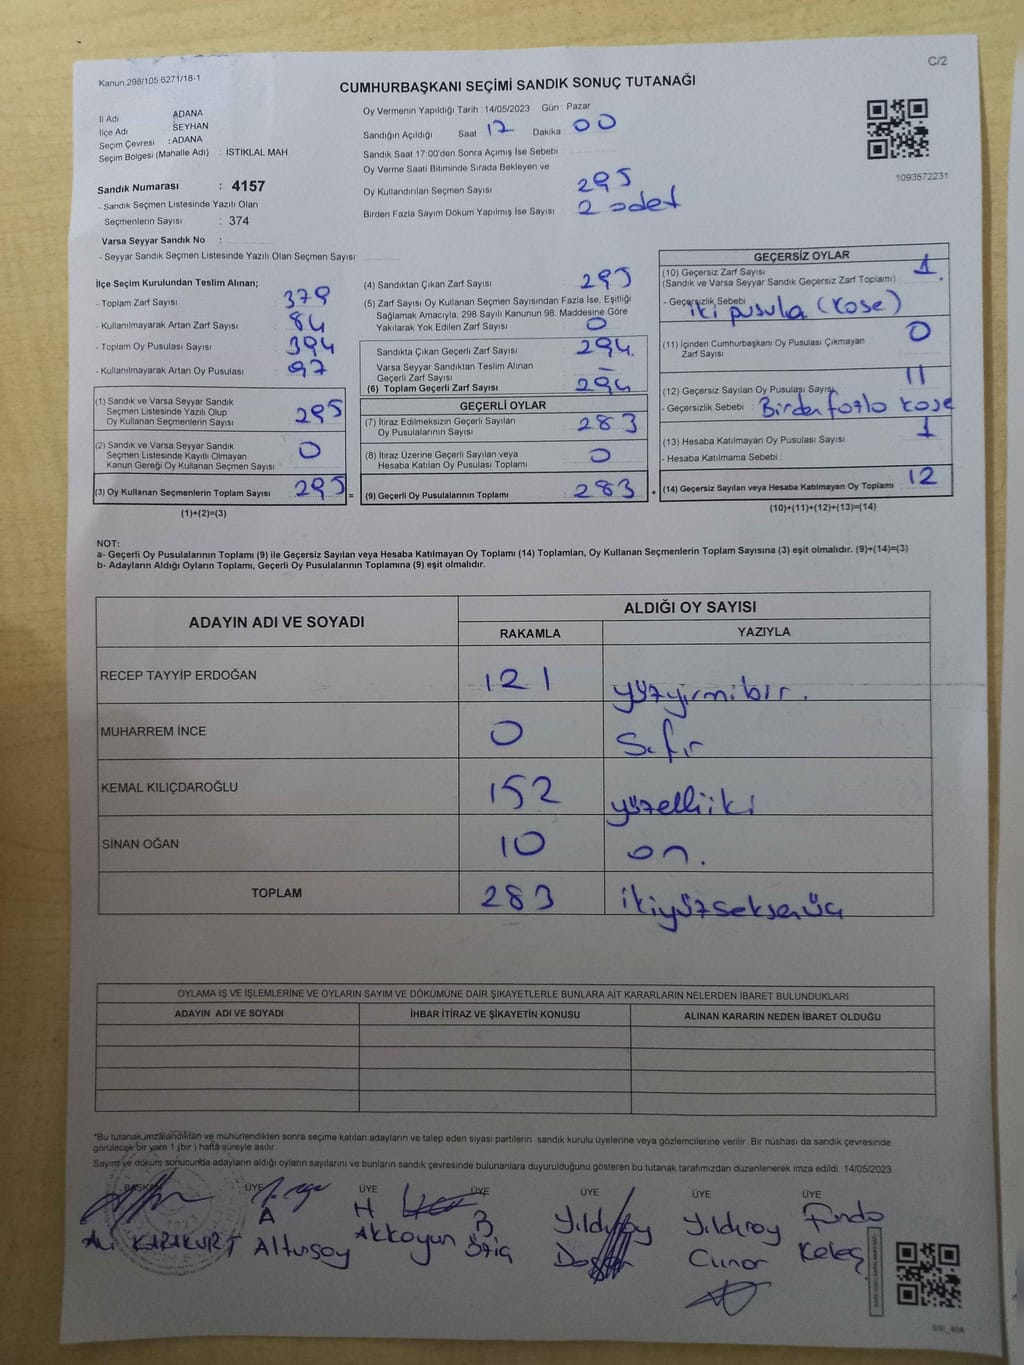 Kanun.298/105.6271/18-1
C/2
CUMHURBAŞKANI SEÇİMİ SANDIK SONUÇ TUTANAĞI
İl Adı ADANA
İlçe Adı : SEYHAN
Seçim Çevresi : ADANA
Seçim Bölgesi (Mahalle Adı) : İSTİKLAL MAH
Sandık Numarası : 4157
- Sandık Seçmen Listesinde Yazılı Olan
Seçmenlerin Sayısı : 374
Varsa Seyyar Sandık No :
- Seyyar Sandık Seçmen Listesinde Yazılı Olan Seçmen Sayısı:
Oy Vermenin Yapıldığı Tarih : 14/05/2023 Gün : Pazar
Sandığın Açıldığı Saat 17 Dakika 00
Sandık Saat 17:00'den Sonra Açımış İse Sebebi
Oy Verme Saati Bitiminde Sırada Bekleyen ve
Oy Kullandırılan Seçmen Sayısı 295
Birden Fazla Sayım Döküm Yapılmış İse Sayısı 2 adet
1093572231
İlçe Seçim Kurulundan Teslim Alınan;
- Toplam Zarf Sayısı 379
- Kullanılmayarak Artan Zarf Sayısı 84
- Toplam Oy Pusulası Sayısı 394
- Kullanılmayarak Artan Oy Pusulası 97
(1) Sandık ve Varsa Seyyar Sandık
Seçmen Listesinde Yazılı Olup
Oy Kullanan Seçmenlerin Sayısı 295
(2) Sandık ve Varsa Seyyar Sandık
Seçmen Listesinde Kayıtlı Olmayan
Kanun Gereği Oy Kullanan Seçmen Sayısı 0
(3) Oy Kullanan Seçmenlerin Toplam Sayısı 295 =
(1)+(2)=(3)
(4) Sandıktan Çıkan Zarf Sayısı 295
(5) Zarf Sayısı Oy Kullanan Seçmen Sayısından Fazla İse, Eşitliği
Sağlamak Amacıyla, 298 Sayılı Kanunun 98. Maddesine Göre
Yakılarak Yok Edilen Zarf Sayısı 0
Sandıkta Çıkan Geçerli Zarf Sayısı 294.
Varsa Seyyar Sandıktan Teslim Alınan
Geçerli Zarf Sayısı –
(6) Toplam Geçerli Zarf Sayısı 294
GEÇERLİ OYLAR
(7) İtiraz Edilmeksizin Geçerli Sayılan
Oy Pusulalarının Sayısı 283
(8) İtiraz Üzerine Geçerli Sayılan veya
Hesaba Katılan Oy Pusulası Toplamı 0
(9) Geçerli Oy Pusulalarının Toplamı 283 +
GEÇERSİZ OYLAR
(10) Geçersiz Zarf Sayısı 1
(Sandık ve Varsa Seyyar Sandık Geçersiz Zarf Toplamı)
- Geçersizlik Sebebi
iki pusula (Kose)
(11) İçinden Cumhurbaşkanı Oy Pusulası Çıkmayan
Zarf Sayısı 0
(12) Geçersiz Sayılan Oy Pusulası Sayısı 11
- Geçersizlik Sebebi : Birden fazla kase
(13) Hesaba Katılmayan Oy Pusulası Sayısı 1
- Hesaba Katılmama Sebebi :
(14) Geçersiz Sayılan veya Hesaba Katılmayan Oy Toplamı 12
(10)+(11)+(12)+(13)=(14)
NOT:
a- Geçerli Oy Pusulalarının Toplamı (9) ile Geçersiz Sayılan veya Hesaba Katılmayan Oy Toplamı (14) Toplamları, Oy Kullanan Seçmenlerin Toplam Sayısına (3) eşit olmalıdır. (9)+(14)=(3)
b- Adayların Aldığı Oyların Toplamı, Geçerli Oy Pusulalarının Toplamına (9) eşit olmalıdır.
ADAYIN ADI VE SOYADI ALDIĞI OY SAYISI
RAKAMLA YAZIYLA
RECEP TAYYİP ERDOĞAN 121 yüzyirmibir.
MUHARREM İNCE 0 Sıfır
KEMAL KILIÇDAROĞLU 152 yüzelliiki
SİNAN OĞAN 10 on.
TOPLAM 283 ikiyüzseksenüç
OYLAMA İŞ VE İŞLEMLERİNE VE OYLARIN SAYIM VE DÖKÜMÜNE DAİR ŞİKAYETLERLE BUNLARA AİT KARARLARIN NELERDEN İBARET BULUNDUKLARI
ADAYIN ADI VE SOYADI İHBAR İTİRAZ VE ŞİKAYETİN KONUSU ALINAN KARARIN NEDEN İBARET OLDUĞU
*Bu tutanak imzalandıktan ve mühürlendikten sonra seçime katılan adayların ve talep eden siyasi partilerin sandık kurulu üyelerine veya gözlemcilerine verilir. Bir nüshası da sandık çevresinde
görülecek bir yere 1 (bir ) hafta süreyle asılır.
Sayım ve döküm sonucunda adayların aldığı oyların sayılarını ve bunların sandık çevresinde bulunanlara duyurulduğunu gösteren bu tutanak tarafımızdan düzenlenerek imza edildi. 14/05/2023
BAŞKAN ÜYE ÜYE ÜYE ÜYE ÜYE ÜYE
Ali KARAKURT
A Altunsoy
H Akkoyun
B
Yıldıray
Yıldıray
Funda Keleş